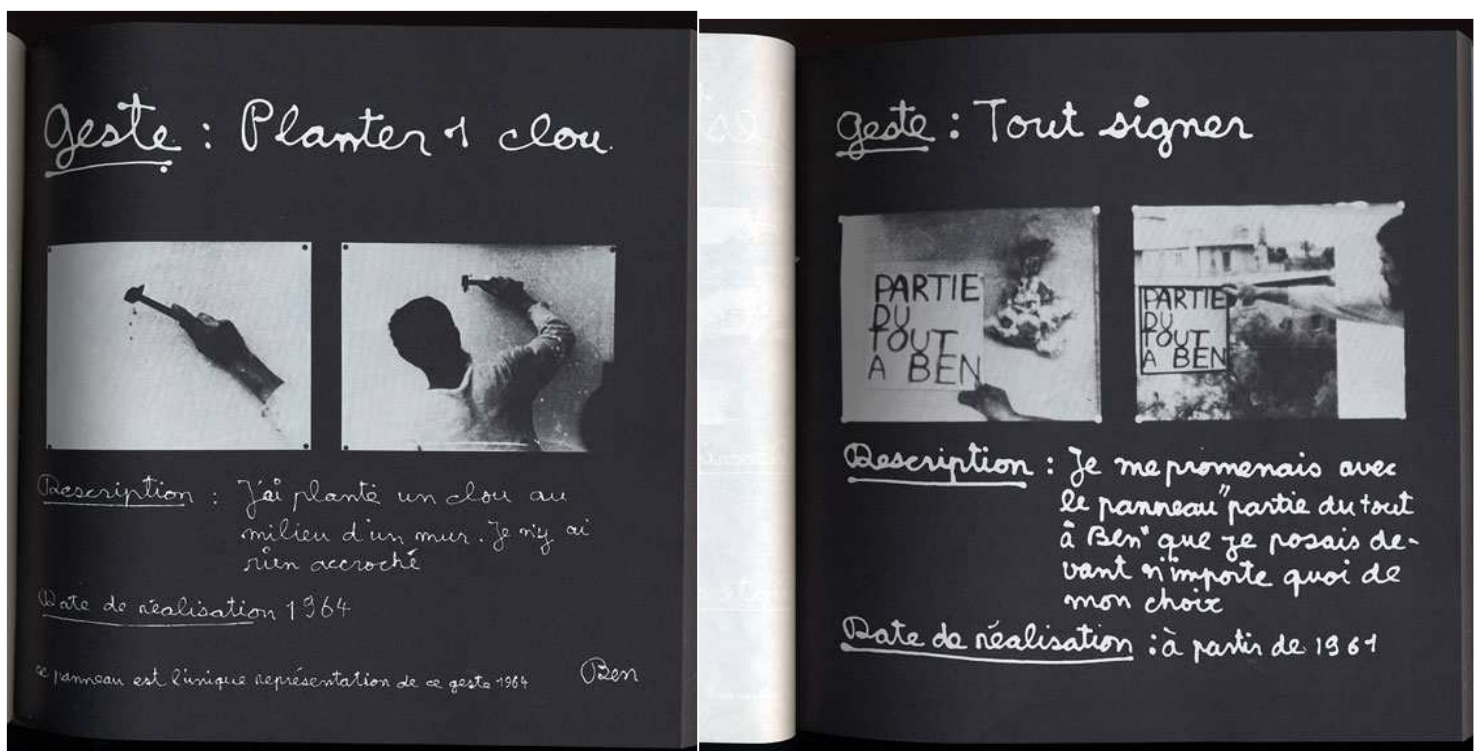 geste : Planter 1 clou.
Description : J'ai planté un clou au
milieu d'un mur. Je n'y ai
rien accroché
Date de réalisation 1964
ce panneau est l'unique représentation de ce geste 1964
Ben
geste : Tout signer
PARTIE
DU
TOUT
A BEN
PARTIE
DU
TOUT
A BEN
Description : Je me promenais avec
le panneau "partie du tout
à Ben" que je posais de-
vant n'importe quoi de
mon choix
Date de réalisation : à partir de 1961